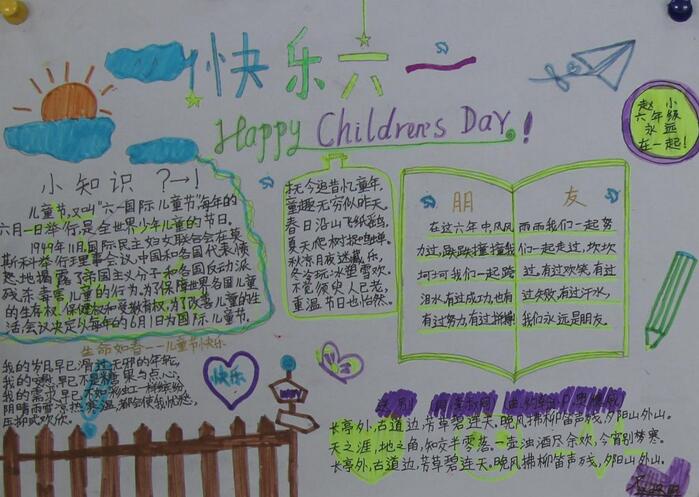 快乐六一
Happy Children's Day!
赵小
六年级
永远
在一起!
小知识 ?→!
儿童节,又叫"六一国际儿童节"每年的
六月一日举行,是全世界少年儿童的节日。
1949年11月国际民主妇女联合会在莫
斯科举行理事会议,中国和各国代表愤
怒地揭露了帝国主义分子和各国反动派
残杀毒害儿童的行为,为了保障世界各国儿童
的生存权、保健权和受教育权,为了改善儿童的生
活会议决定以每年的6月1日为国际儿童节。
抚今追昔忆童年,
童趣无穷似昨天。
春日沿山飞纸鸢,
夏天爬树捉鸣蝉。
秋宵月夜迷藏乐,
冬冷玩冰塑雪欢。
不觉须臾人已老,
重温节日也怡然。
朋友
在这六年中风风雨雨我们一起努
力过,跌跌撞撞我们一起走过,坎坎
坷坷我们一起跨过,有过欢笑,有过
泪水,有过成功,也有过失败,有过汗水,
有过努力,有过拼搏我们永远是朋友.
生命如春——儿童节快乐
我的岁月早已
无邪的年轮,
我的
早已不是糖果与点心,
我的需求早已不如彩虹一样缤纷
阴晴雨雪凉热
都会使我忧愁,
压抑或欢欣.
快乐
长亭外,古道边,芳草碧连天。晚风拂柳笛声残,夕阳山外山。
天之涯,地之角,知交半零落。一壶浊酒尽余欢,今宵别梦寒。
长亭外,古道边,芳草碧连天。晚风拂柳笛声残,夕阳山外山.